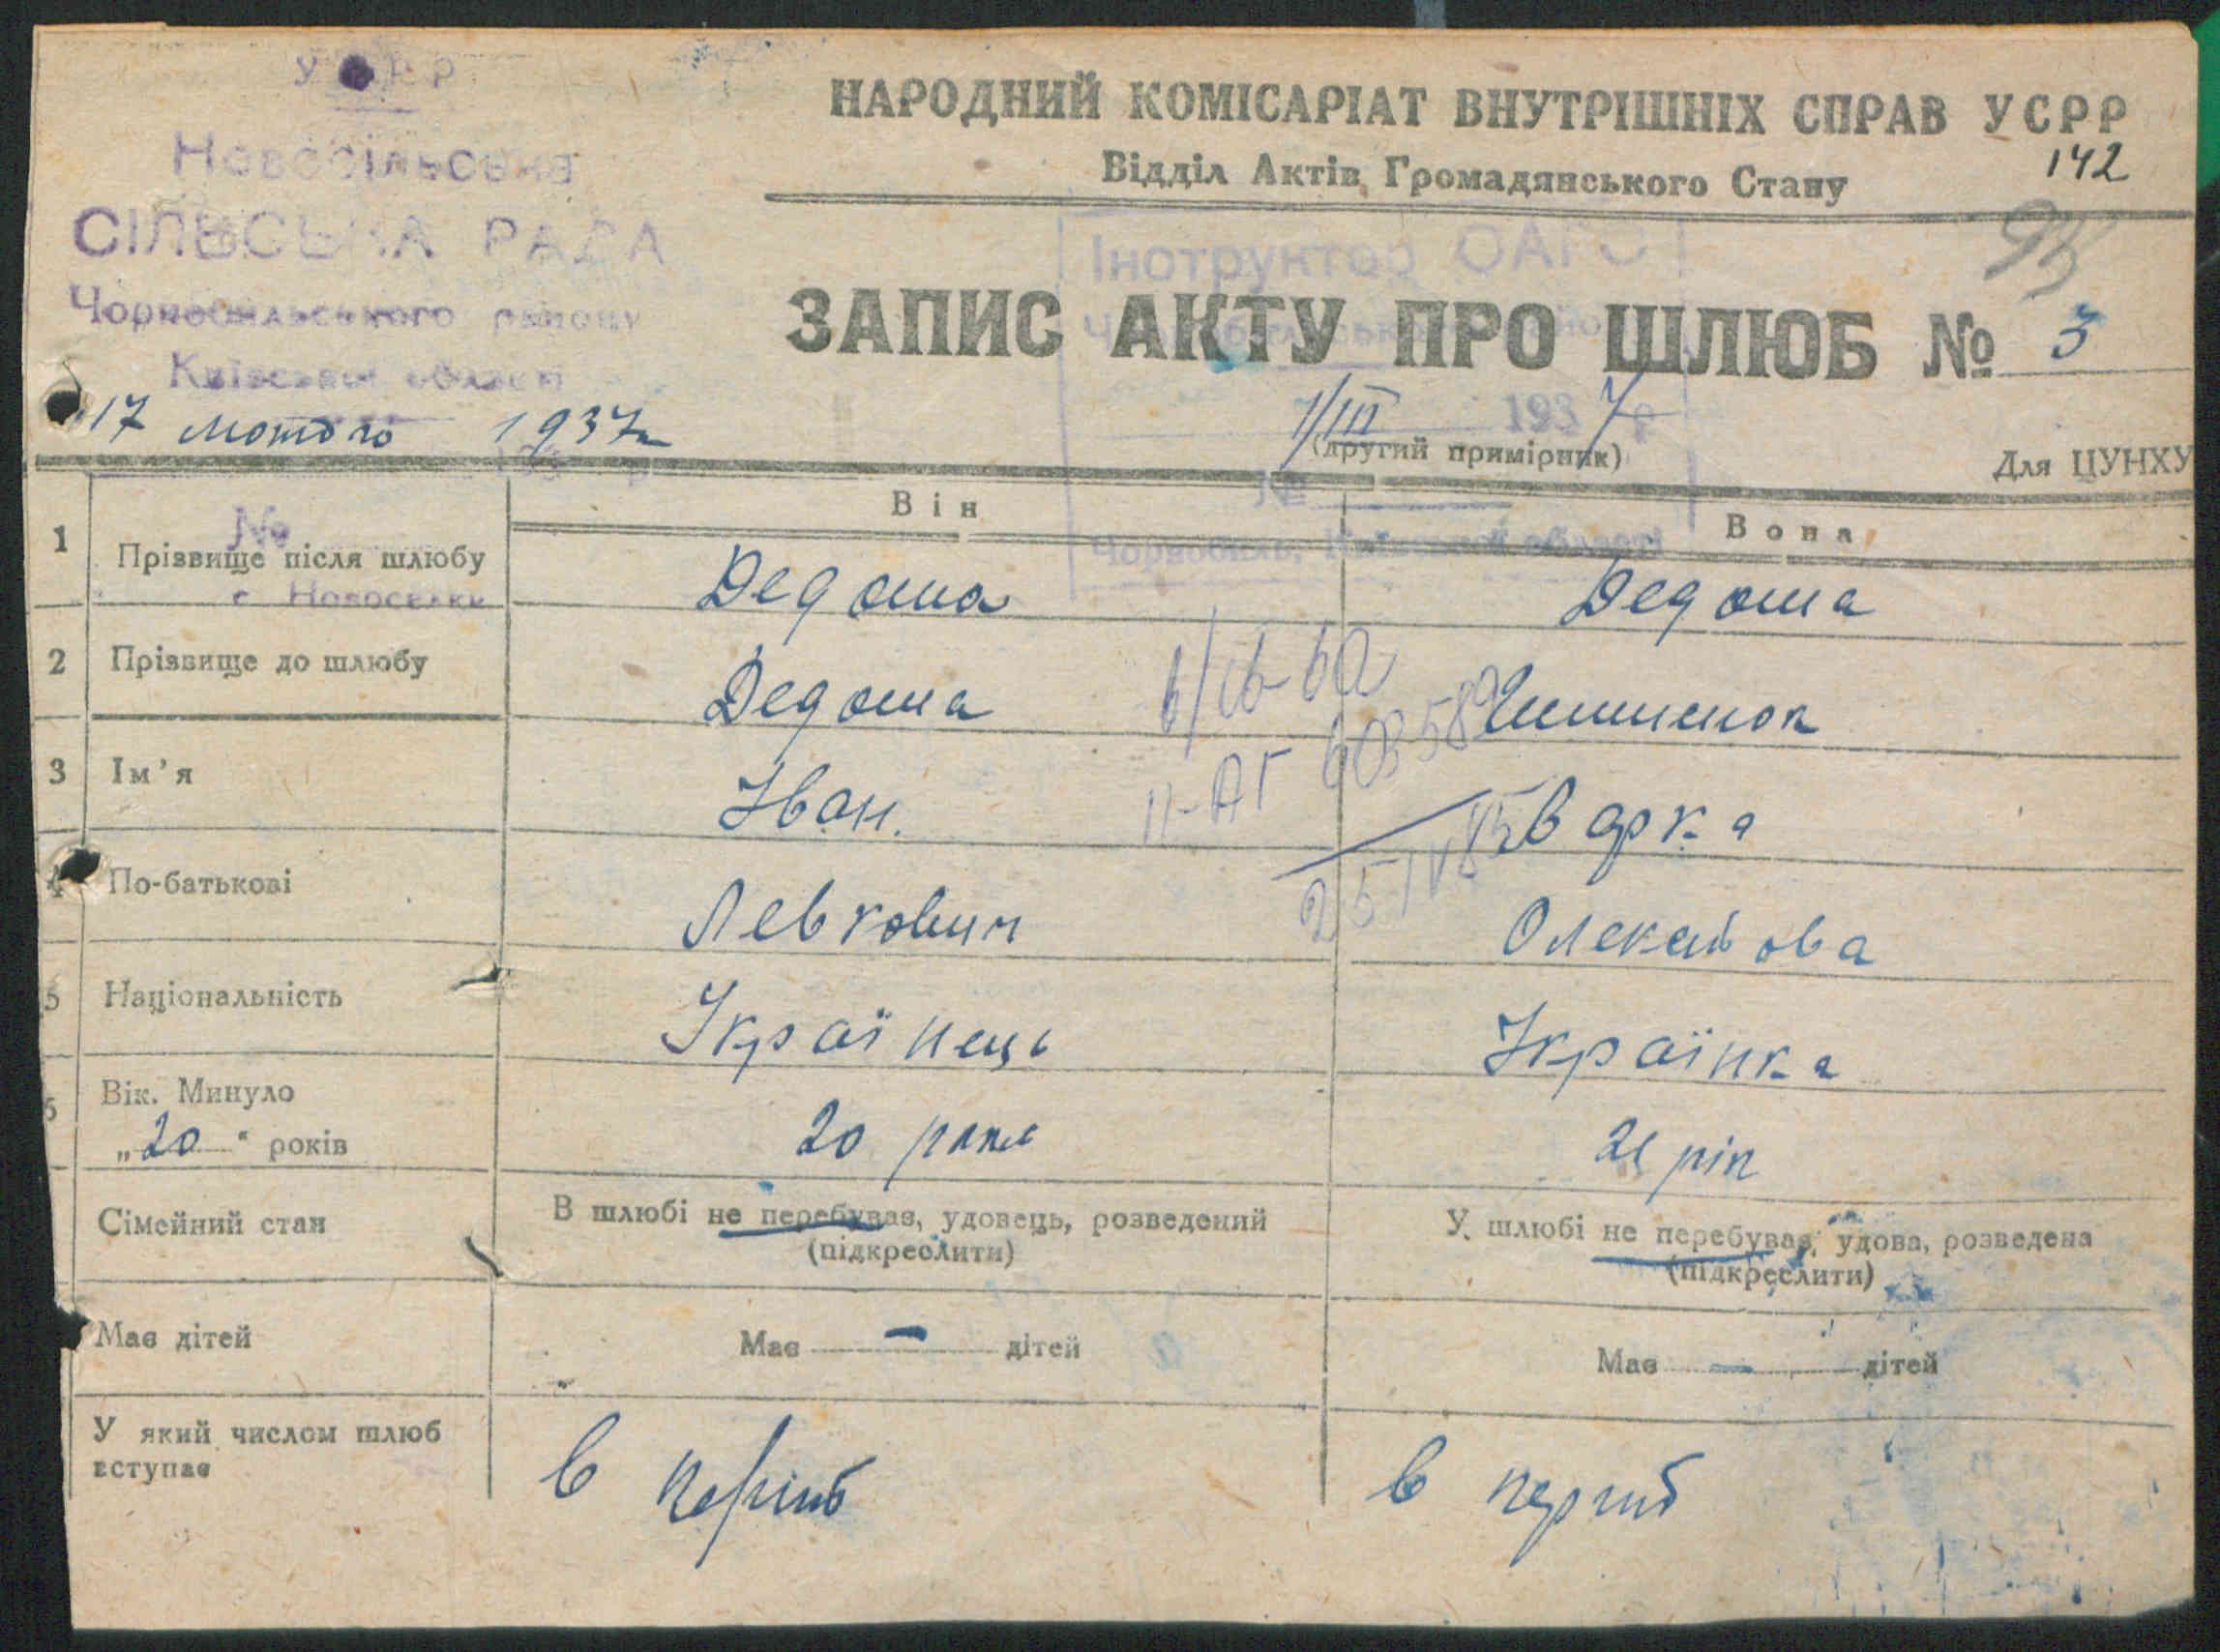 УСРР
Новосільська
СІЛЬСЬКА РАДА
Чорнобильського району
Київської області
17 лютого 1937 р
НАРОДНИЙ КОМІСАРІАТ ВНУТРІШНІХ СПРАВ УСРР
Відділ Актів Громадянського Стану
142
Інструктор ОАГС
ЗАПИС АКТУ ПРО ШЛЮБ № 3
1/III 1937 р
(другий примірник)
Для ЦУНХУ
№
Чорнобиль, Київської області
№
с Новосілки
Він
Вона
1 Прізвище після шлюбу Дедоша Дедоша
2 Прізвище до шлюбу Дедоша
3 Ім’я Іван. Варка
4 По-батькові Левкович
5 Національність Українець Українка
6 Вік. Минуло
„20“ років 20 21 рік
Сімейний стан В шлюбі не перебував, удовець, розведений У шлюбі не перебував, удова, розведена
(підкреслити) (підкреслити)
Має дітей Має — дітей Має — дітей
У який числом шлюб
вступає в перший в перший